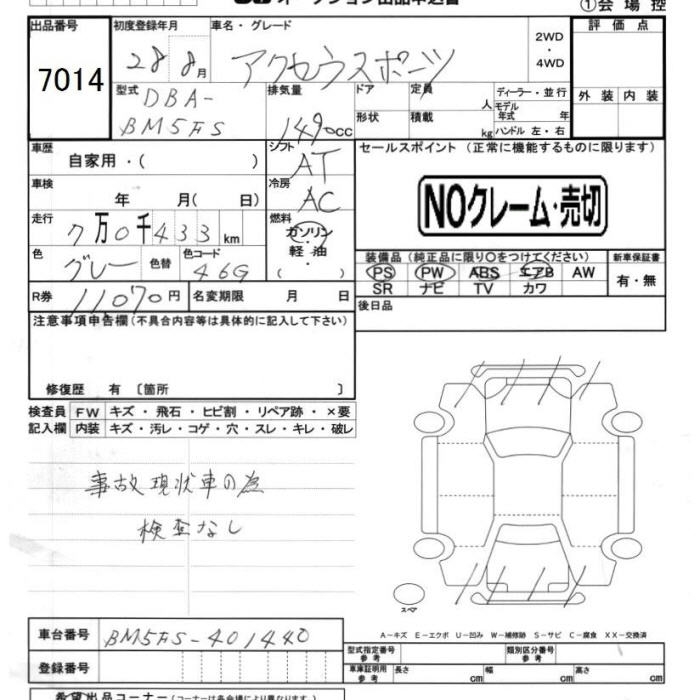 オークション出品申込書
①会場控
出品番号 初度登録年月 車名・グレード 評価点
7014 28 8月 アクセラスポーツ 2WD・4WD
型式 排気量 ドア 定員 人 ディーラー・並行 外装 内装
DBA-BM5FS 1490cc 形状 積載 kg モデル年式 年 ハンドル 左・右
車歴 シフト セールスポイント (正常に機能するものに限ります)
自家用・( ) AT
車検 冷房
年 月( 日) AC NOクレーム・売切
走行 燃料
7万0千433km ガソリン
色 色替 色コード 軽・油
グレー 46G ( ・ )
装備品(純正品に限り〇をつけてください) 新車保証書
PS PW ABS エアB AW 有・無
SR ナビ TV カワ
R券 11070円 名変期限 月 日 後日品
注意事項申告欄(不具合内容等は具体的に記入して下さい)
修復歴 有 〔箇所 〕
検査員 FW キズ・飛石・ヒビ割・リペア跡・×要
記入欄 内装 キズ・汚レ・コゲ・穴・スレ・キレ・破レ
事故現状車の為
検査なし
スペア
A-キズ E-エクボ U-凹み W-補修跡 S-サビ C-腐食 XX-交換済
車台番号 BM5FS-401440
型式指定番号 参考 類別区分番号 参考
登録番号 車庫証明用 参考 長さ cm 幅 cm 高さ cm
希望出品コーナー